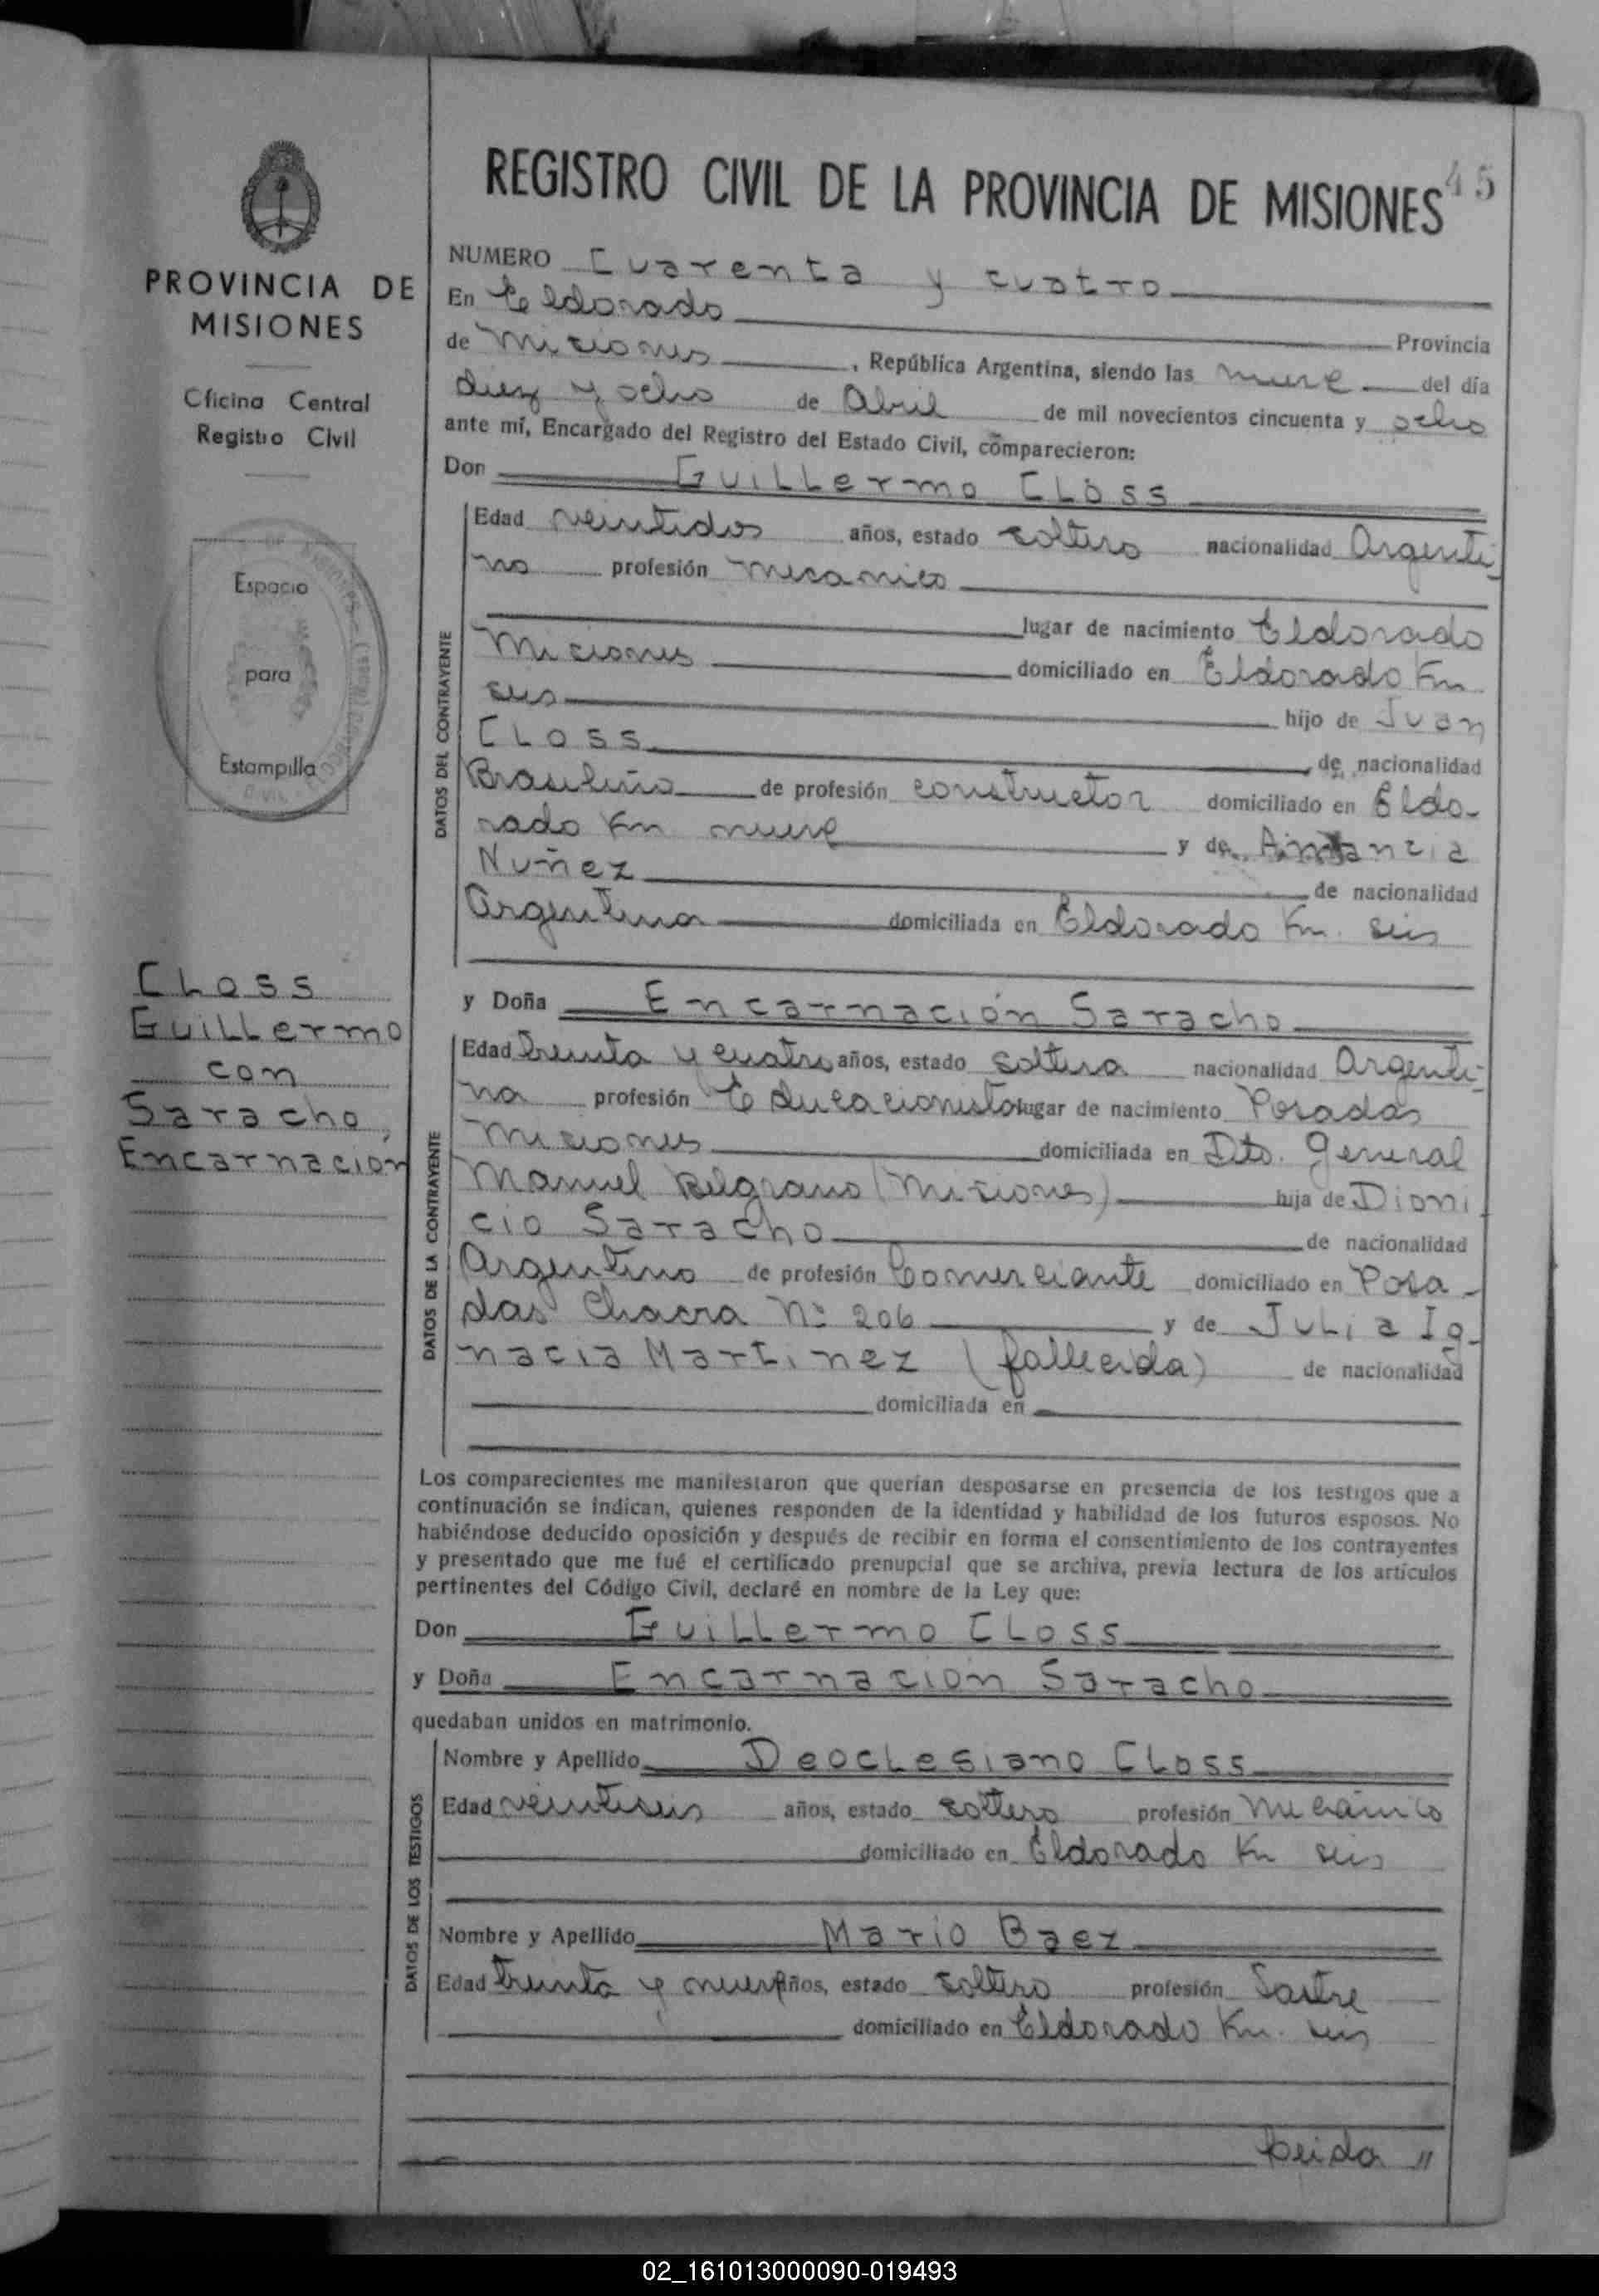 REGISTRO CIVIL DE LA PROVINCIA DE MISIONES
45
PROVINCIA DE
MISIONES
Oficina Central
Registro Civil
Espacio
para
Estampilla
Closs
Guillermo
con
Saracho,
Encarnacion
NUMERO Cuarenta y cuatro
En Eldorado Provincia
de Misiones, República Argentina, siendo las nueve del día
diez y ocho de Abril de mil novecientos cincuenta y ocho
ante mí, Encargado del Registro del Estado Civil, comparecieron:
Don Guillermo Closs
DATOS DEL CONTRAYENTE
Edad veintidos años, estado soltero nacionalidad Argenti-
no profesión mecanico
lugar de nacimiento Eldorado
Misiones domiciliado en Eldorado Km
seis hijo de Juan
Closs de nacionalidad
Brasileño de profesión constructor domiciliado en Eldo-
rado Km nueve y de Amancia
Nuñez de nacionalidad
Argentina domiciliada en Eldorado Km. seis
y Doña Encarnación Saracho
DATOS DE LA CONTRAYENTE
Edad treinta y cuatro años, estado soltera nacionalidad Argenti-
na profesión Educacionista lugar de nacimiento Posadas
Misiones domiciliada en Dto. General
Manuel Belgrano (Misiones) hija de Dioni
cio Saracho de nacionalidad
Argentino de profesión Comerciante domiciliado en Posa-
das Chacra Nº 206 y de Julia Ig-
nacia Martinez (fallecida) de nacionalidad
domiciliada en
Los comparecientes me manifestaron que querían desposarse en presencia de los testigos que a
continuación se indican, quienes responden de la identidad y habilidad de los futuros esposos. No
habiéndose deducido oposición y después de recibir en forma el consentimiento de los contrayentes
y presentado que me fué el certificado prenupcial que se archiva, previa lectura de los artículos
pertinentes del Código Civil, declaré en nombre de la Ley que:
Don Guillermo Closs
y Doña Encarnación Saracho
quedaban unidos en matrimonio.
DATOS DE LOS TESTIGOS
Nombre y Apellido Deoclesiano Closs
Edad veintiseis años, estado soltero profesión Mecánico
domiciliado en Eldorado Km seis
Nombre y Apellido Mario Baez
Edad treinta y nueve años, estado soltero profesión Sastre
domiciliado en Eldorado Km. seis
Leida "
02_161013000090-019493